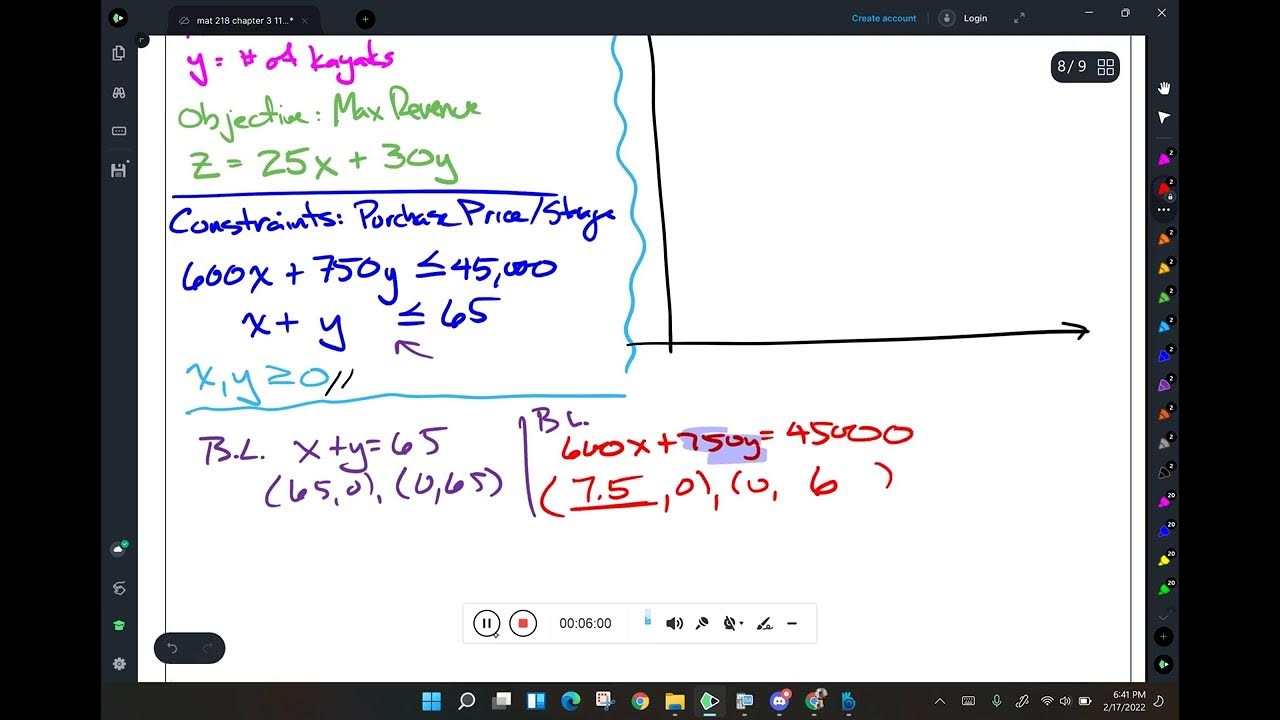 mat 218 chapter 3 11...*
Create account
Login
y = # of kayaks
8/9
Objective: Max Revenue
z = 25x + 30y
Constraints: Purchase Price/Storage
600x + 750y ≤ 45,000
x + y ≤ 65
x, y ≥ 0 //
B.L. x + y = 65
(65,0), (0,65)
B.L.
600x + 750y = 45000
(7.5, 0), (0, 6 )
00:06:00
6:41 PM
2/17/2022